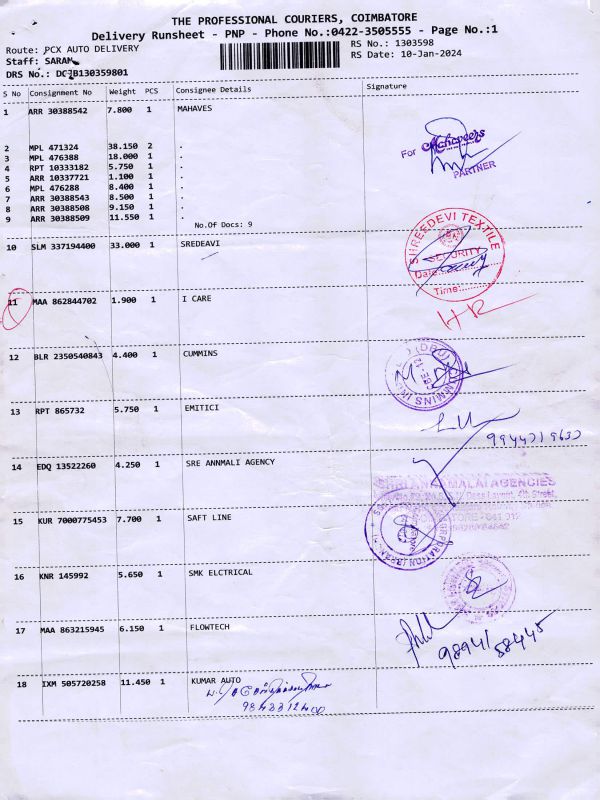 THE PROFESSIONAL COURIERS, COIMBATORE
Delivery Runsheet - PNP - Phone No.:0422-3505555 - Page No.:1
Route: PCX AUTO DELIVERY
RS No.: 1303598
Staff: SARAN
RS Date: 10-Jan-2024
DRS No.: B130359801
S No Consignment No Weight PCS Consignee Details Signature
1 ARR 30388542 7.800 1 MAHAVES
2 MPL 471324 38.150 2 .
3 MPL 476388 18.000 1 .
4 RPT 10333182 5.750 1 .
5 ARR 10337721 1.100 1 .
6 MPL 476288 8.400 1 .
7 ARR 30388543 8.500 1 .
8 ARR 30388508 9.150 1 .
9 ARR 30388509 11.550 1 .
No.Of Docs: 9
For Mahaveers
PARTNER
10 SLM 337194400 33.000 1 SREDEAVI
SHREEDEVI TEXTILE
SECURITY
Date:
Time:
11 MAA 862844702 1.900 1 I CARE
HR
12 BLR 2350540843 4.400 1 CUMMINS
13 RPT 865732 5.750 1 EMITICI
14 EDQ 13522260 4.250 1 SRE ANNMALI AGENCY
SHRI ANNAMALAI AGENCIES
15 KUR 7000775453 7.700 1 SAFT LINE
16 KNR 145992 5.650 1 SMK ELCTRICAL
17 MAA 863215945 6.150 1 FLOWTECH
9894158445
18 IXM 505720258 11.450 1 KUMAR AUTO